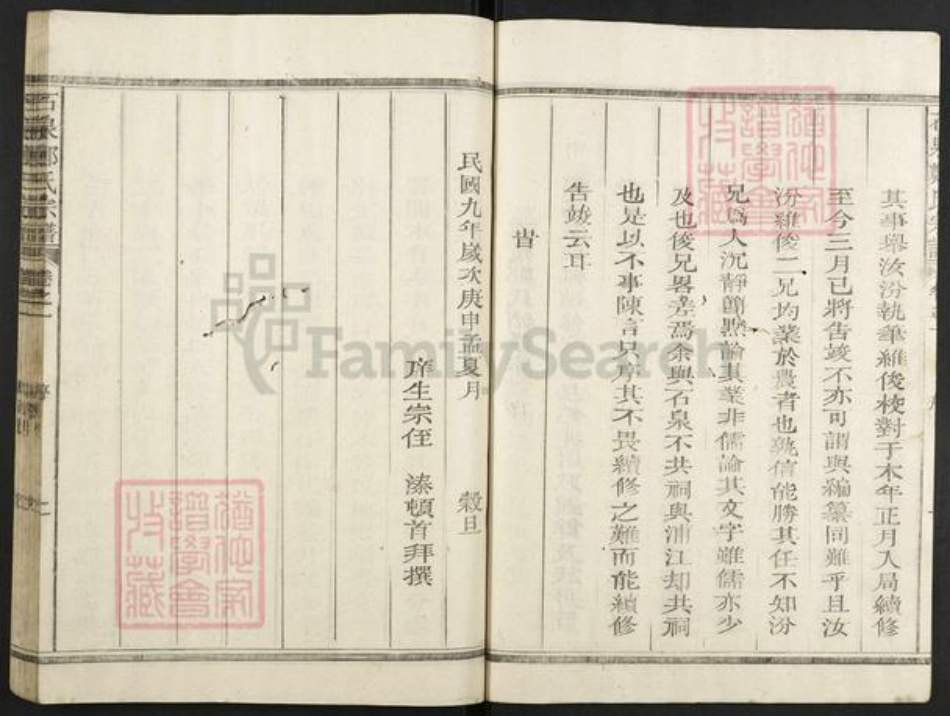 其事舉汝汾執筆維俊校對于木年正月入局續修
至今三月已將告竣不亦可謂與編纂同難乎且汝
汾維俊二兄均業於農者也孰信能勝其任不知汾
兄為人沉靜簡默論其業非儒論其文字雖儒亦少
及也俊兄畧差焉余與石泉不共祠與浦江却共祠
也是以不事陳言只序其不畏續修之難而能續修
告竣云耳
旹
民國九年歲次庚申孟夏月 穀旦
庠生宗侄 溱頓首拜撰
石泉鄭氏宗譜 卷之一
FamilySearch
猶他家譜學會收藏
猶他家譜學會收藏